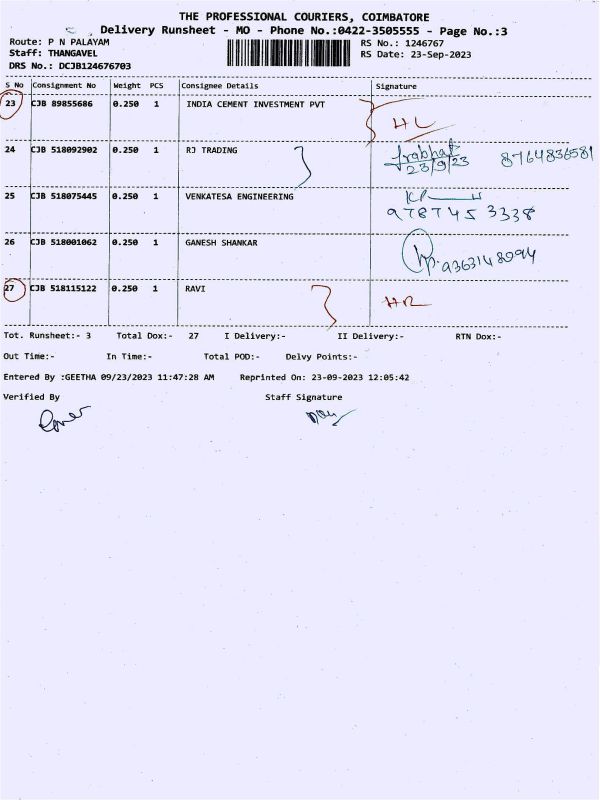 THE PROFESSIONAL COURIERS, COIMBATORE
Delivery Runsheet - MO - Phone No.:0422-3505555 - Page No.:3
Route: P N PALAYAM RS No.: 1246767
Staff: THANGAVEL RS Date: 23-Sep-2023
DRS No.: DCJB124676703
S No Consignment No Weight PCS Consignee Details Signature
23 CJB 89855686 0.250 1 INDIA CEMENT INVESTMENT PVT
24 CJB 518092902 0.250 1 RJ TRADING 23/9/23 8764836581
25 CJB 518075445 0.250 1 VENKATESA ENGINEERING
9787453338
26 CJB 518001062 0.250 1 GANESH SHANKAR
27 CJB 518115122 0.250 1 RAVI
Tot. Runsheet:- 3 Total Dox:- 27 I Delivery:- II Delivery:- RTN Dox:-
Out Time:- In Time:- Total POD:- Delvy Points:-
Entered By :GEETHA 09/23/2023 11:47:28 AM Reprinted On: 23-09-2023 12:05:42
Verified By Staff Signature